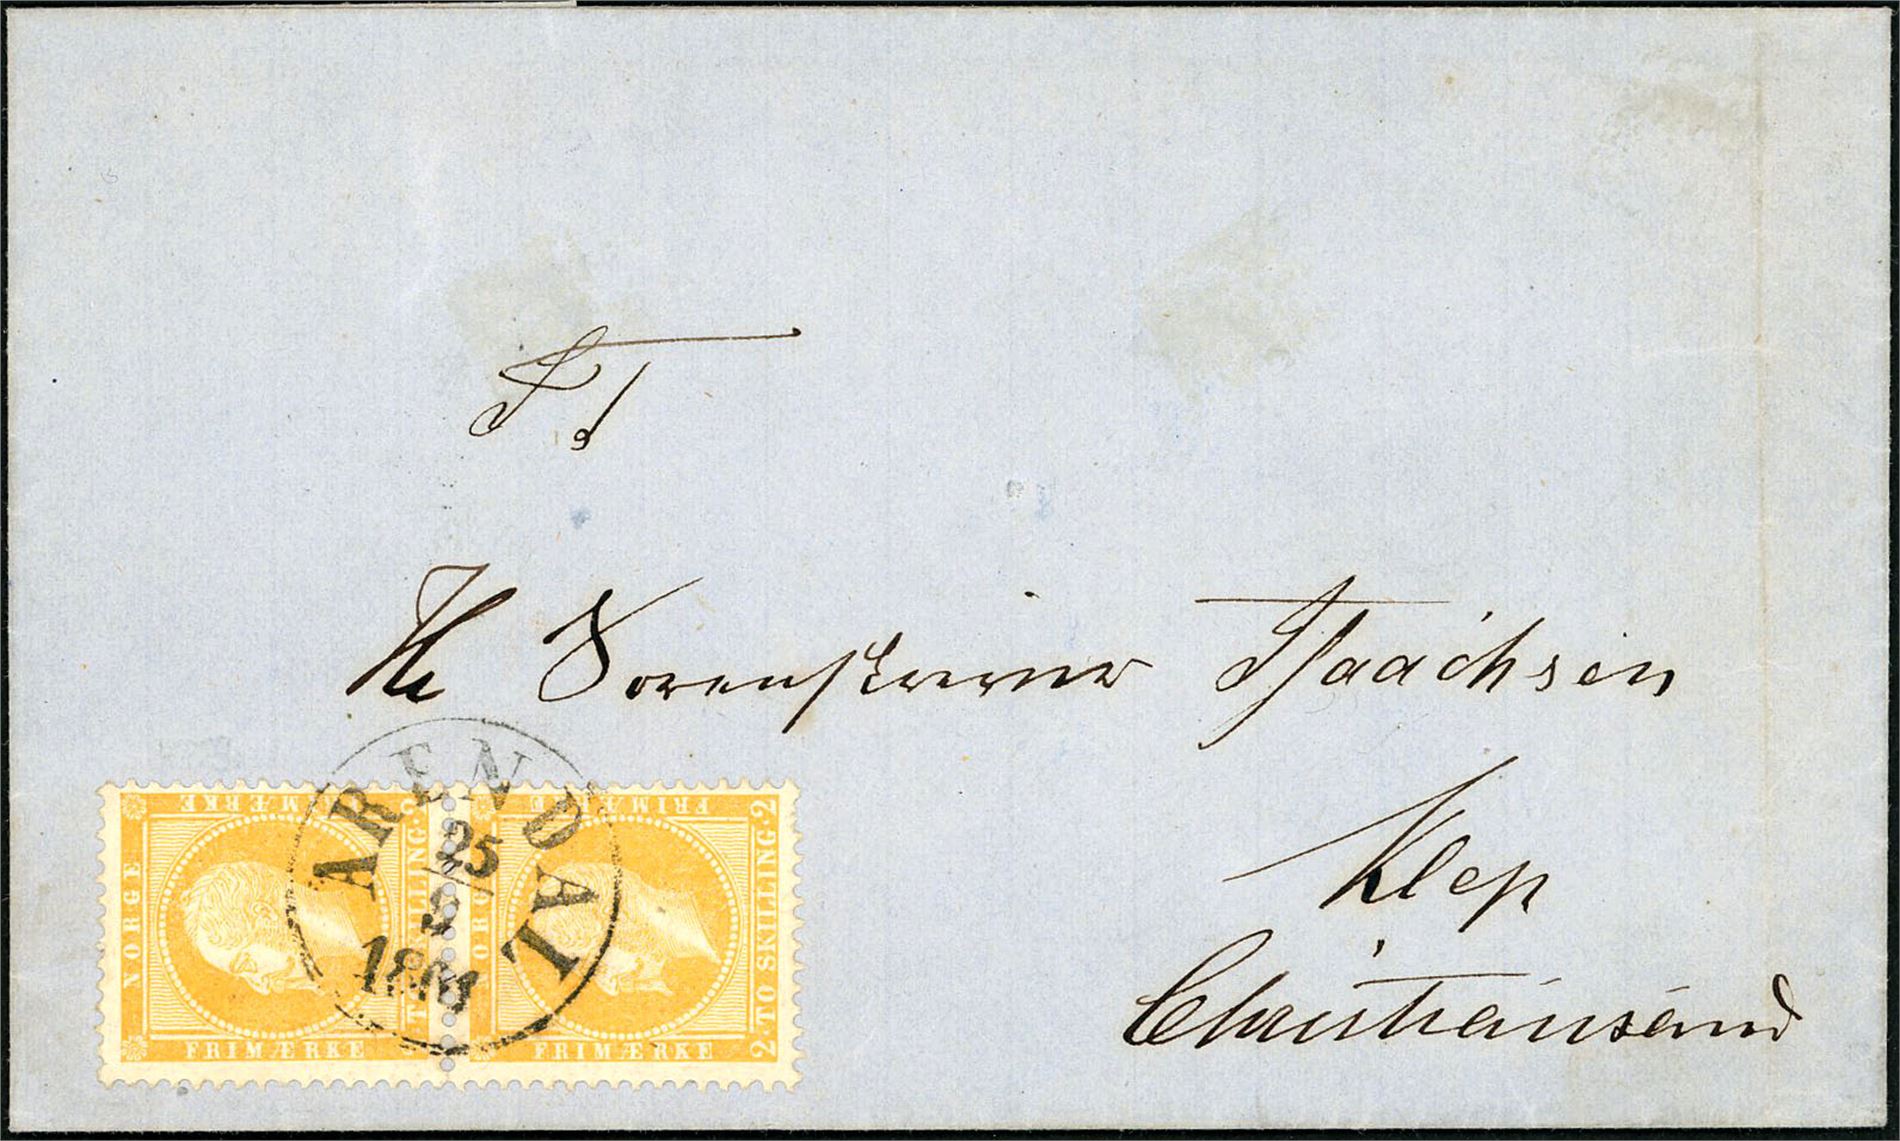 S. T.
Hr Sorenskriver Isaachsen
Klep
Christianssand
ARENDAL
25
9
1861
NORGE FRIMÆRKE TO SKILLING 2 FRIMÆRKE
NORGE FRIMÆRKE 2 TO SKILLING 2 FRIMÆRKE